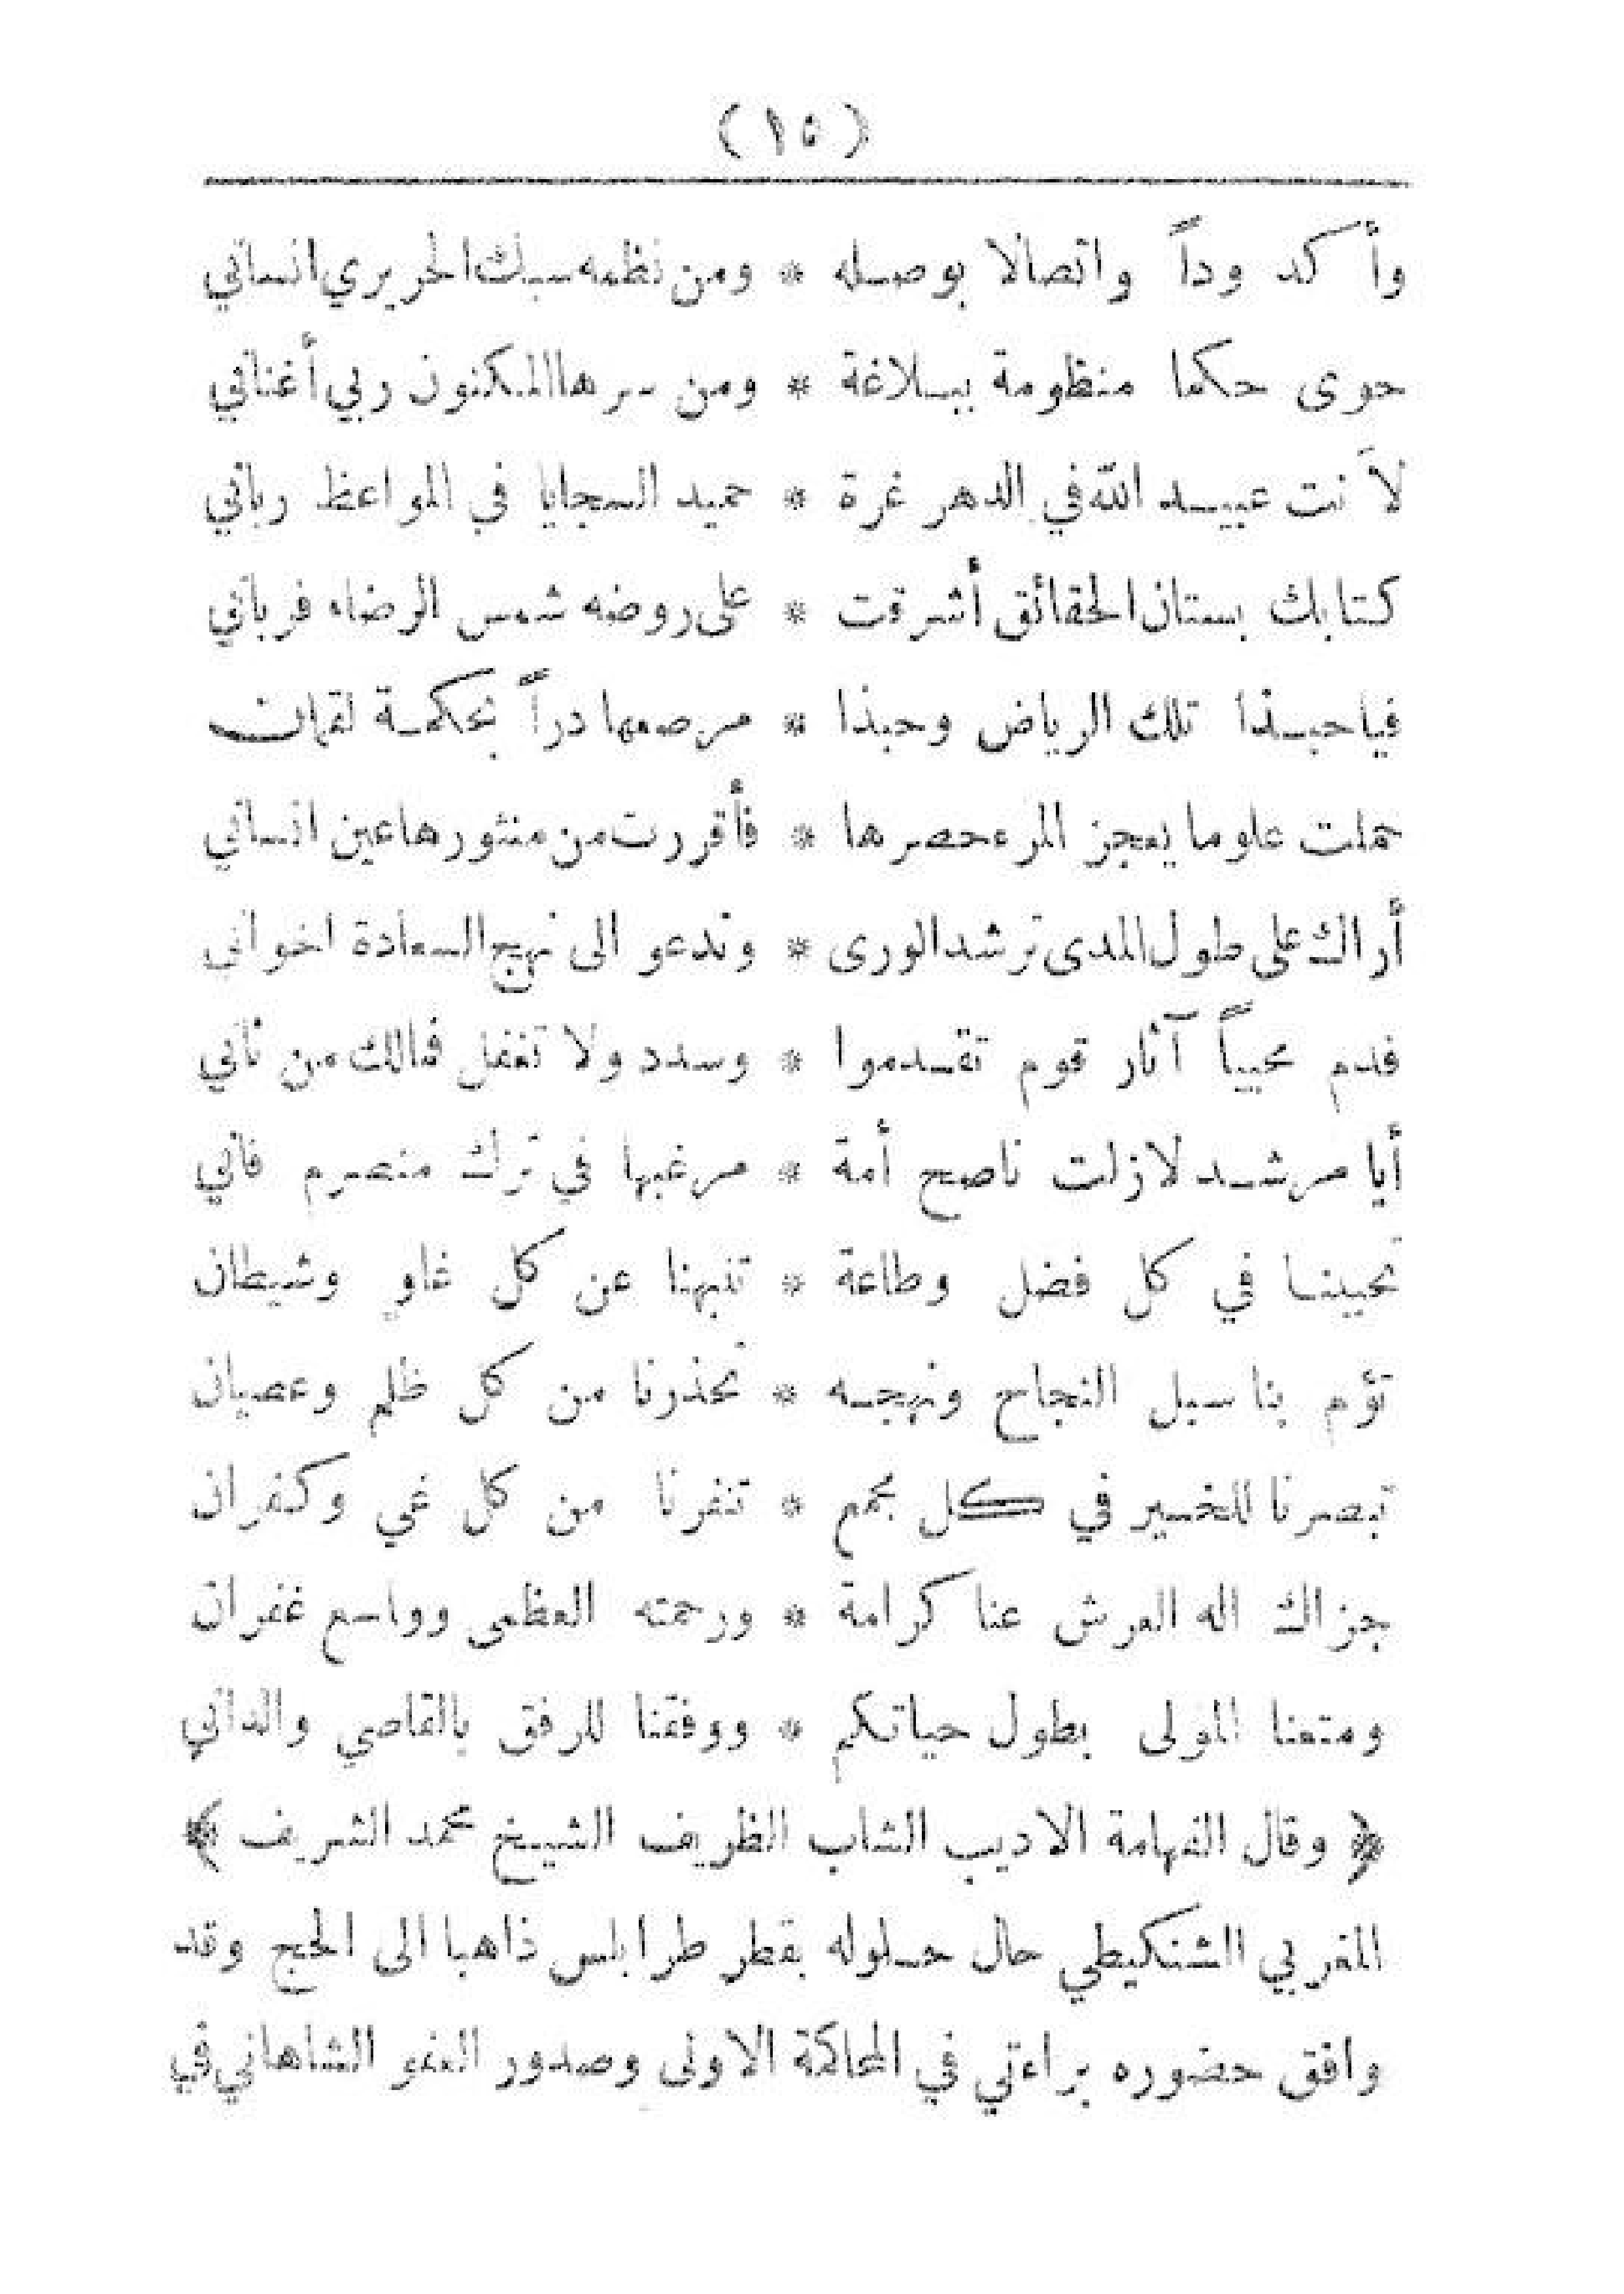 (١٥)
وأكد وداً واتصالا بوصله * ومن نظمه سبك الحريري انساني
حوى حكما منظومة ببلاغة * ومن سرها المكنون ربي أغناني
لأنت عبيد الله في الدهر غرة * حميد السجايا في المواعظ رباني
كتابك بستان الحقائق أشرقت * على روضه شمس الرضاء فرباني
فياحبذا تلك الرياض وحبذا * مرصعها دراً بحكمة لقمان
حملت علوما يعجز المرء حصرها * فأقررت من منثورها عين انساني
أراك على طول المدى ترشد الورى * وتدعو الى نهج السعادة اخواني
فدم محيياً آثار قوم تقدموا * وسدد ولا تغفل فمالك من ثاني
أيا مرشد لازلت ناصح أمة * مرغبها في ترك منصرم فاني
تحببنا في كل فضل وطاعة * تنبهنا عن كل غاوٍ وشيطان
تؤم بنا سبل النجاح ونهجه * تحذرنا من كل ظلم وعصيان
تبصرنا للخير في كل مجمع * تنفرنا من كل غي وكفران
جزاك اله العرش عنا كرامة * ورحمته العظمى وواسع غفران
ومتعنا المولى بطول حياتكم * ووفقنا للرفق بالقاصي والداني
﴿ وقال الفهامة الاديب الشاب الظريف الشيخ محمد الشريف ﴾
المغربي الشنكيطي حال حلوله بقطر طرابلس ذاهبا الى الحج وقد
وافق حضوره براءتي في المحاكمة الاولى وصدور العفو الشاهاني في